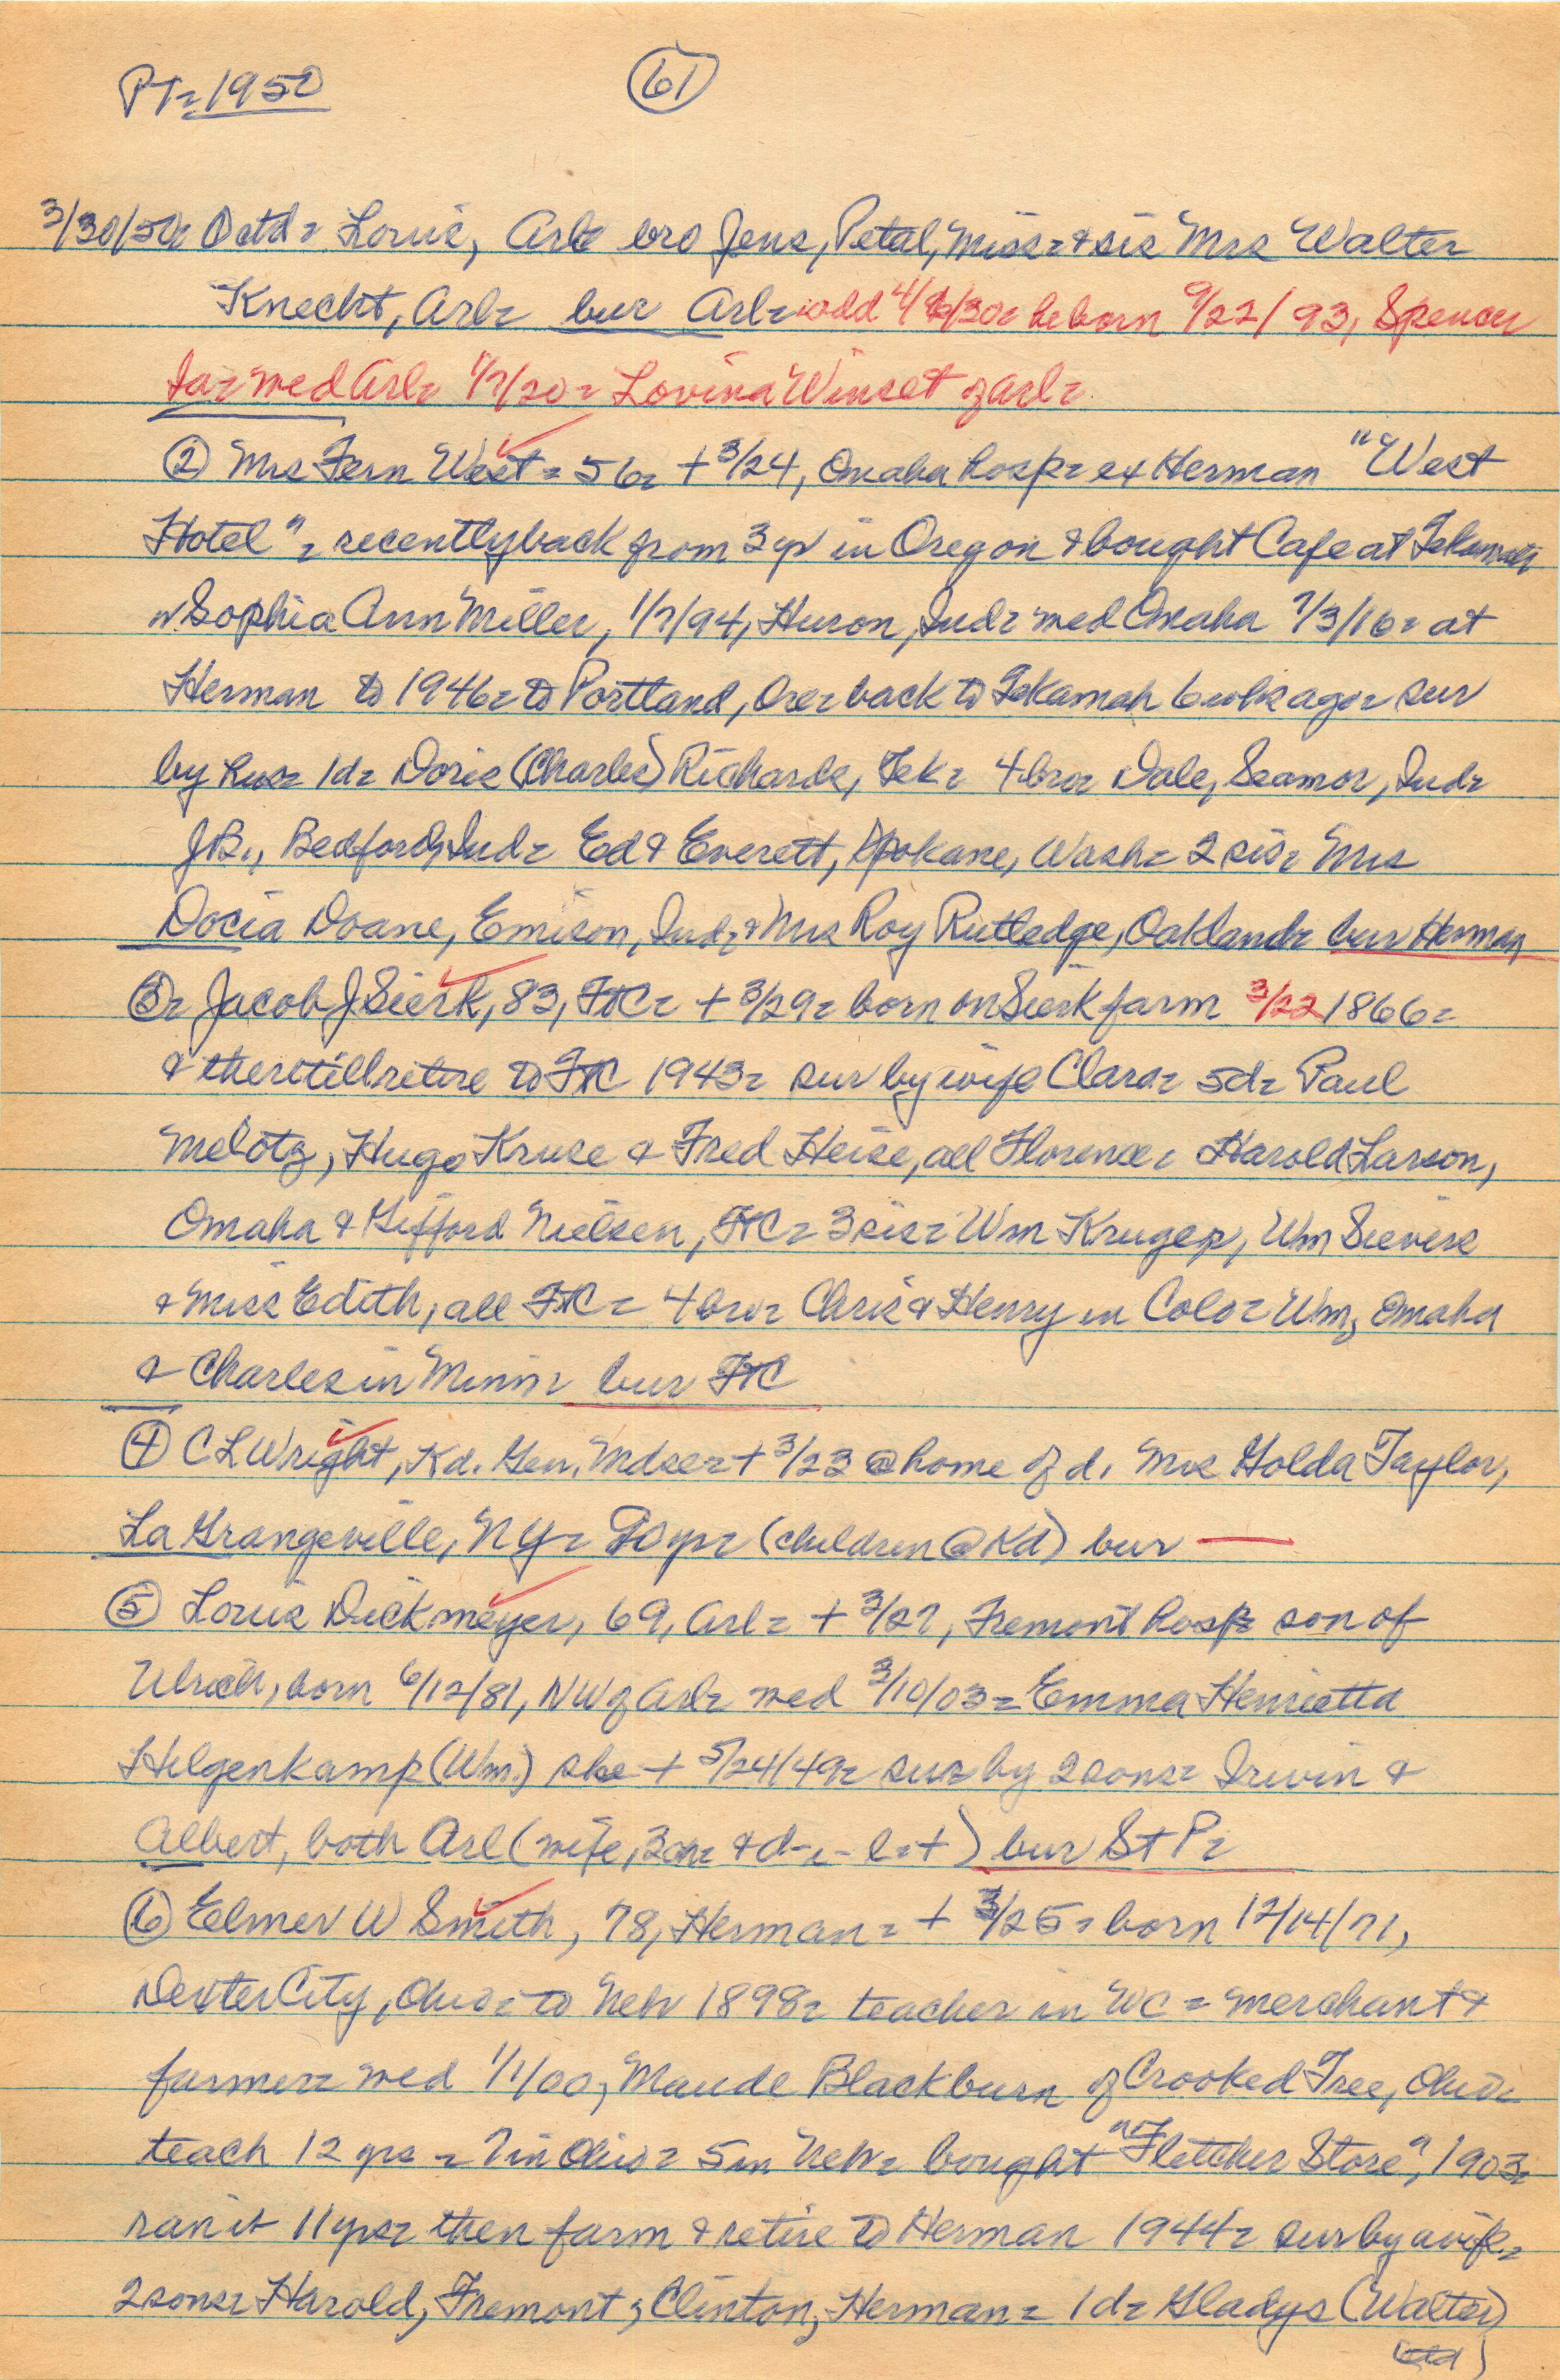 PT= 1950
61
3/30/50= Octd= Louis, Arl= bro Jens, Petal, Miss= & sis Mrs Walter
Knecht, Arl= bur Arl= add he born 9/22/93, Spencer
Ia= med Arl= 1/7/20= Lovina Winset of Arl=
② Mrs Fern West= 56= + 3/24, Omaha hosp= ex Herman "West
Hotel"= recently back from 3 yr in Oregon & bought Cafe at Tekamah
n. Sophia Ann Miller, 1/7/94, Huron, Ind= med Omaha 7/3/16= at
Herman to 1946= to Portland, Ore= back to Tekamah 6 wks ago= sur
by hus= 1d= Doris (Charles) Richards, Tek= 4 bro= Dale, Seamor, Ind=
J.B., Bedford, Ind= Ed & Everett, Spokane, Wash= 2 sis= Mrs
Docia Doane, Emison, Ind= & Mrs Roy Rutledge, Oakland= bur Herman
③= Jacob J Sierk, 83, FtC= + 3/29= born on Sierk farm 3/22 1866=
& there till retire to FtC 1943= sur by wife Clara= 5d= Paul
Melotz, Hugo Kruse & Fred Heise, all Florence= Harold Larson,
Omaha & Gifford Nielsen, FtC= 3 sis= Wm Kruger, Wm Sievers
& Miss Edith, all FtC= 4 bro= Chris & Henry in Colo= Wm, Omaha
& Charles in Minn= bur FtC
④ C L Wright, Kd. Gen. Mdse= + 3/23 @ home of d. Mrs Golda Taylor,
La Grangeville, NY= 50 yr= (children @ Kd) bur —
⑤ Louis Dickmeyer, 69, Arl= + 3/27, Fremont hosp= son of
Ulrich, born 6/12/81, NW of Arl= med 3/10/03= Emma Henrietta
Hilgenkamp (Wm.) she + 5/24/49= sur by 2 sons= Irwin &
Albert, both Arl (wife, & d-i-l=+) bur St P=
⑥ Elmer W Smith, 78, Herman= + 3/25= born 12/14/71,
Dexter City, Ohio= to Neb 1898= teacher in WC= merchant &
farmer= med 1/1/00, Maude Blackburn of Crooked Tree, Ohio=
teach 12 yrs= 7 in Ohio= 5 in Neb= bought "Fletcher Store", 1903=
ran it 11 yrs= then farm & retire to Herman 1944= sur by wife=
2 sons= Harold, Fremont; Clinton, Herman= 1d= Gladys (Walter)